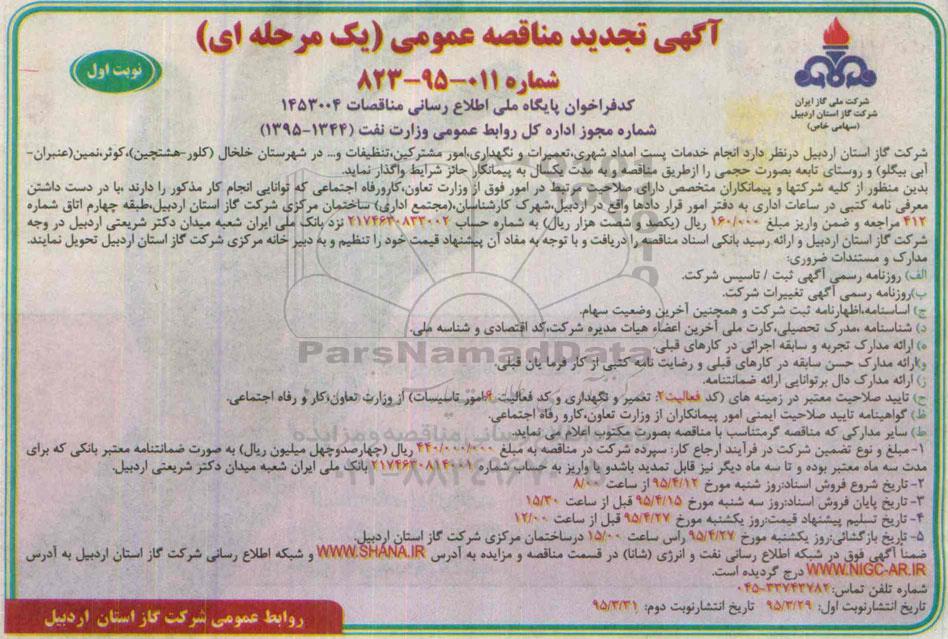 آگهی تجدید مناقصه عمومی (یک مرحله ای)
شماره ۰۱۱-۹۵-۸۲۳
کدفراخوان پایگاه ملی اطلاع رسانی مناقصات ۱۴۵۳۰۰۴
شماره مجوز اداره کل روابط عمومی وزارت نفت (۱۳۴۴-۱۳۹۵)
نوبت اول
شرکت ملی گاز ایران
شرکت گاز استان اردبیل
(سهامی خاص)
شرکت گاز استان اردبیل درنظر دارد انجام خدمات پست امداد شهری،تعمیرات و نگهداری،امور مشترکین،تنظیفات و... در شهرستان خلخال (کلور-هشتجین)،کوثر،نمین(عنبران-
آبی بیگلو) و روستای تابعه بصورت حجمی را ازطریق مناقصه و به مدت یکسال به پیمانکار حائز شرایط واگذار نماید.
بدین منظور از کلیه شرکتها و پیمانکاران متخصص دارای صلاحیت مرتبط در امور فوق از وزارت تعاون،کارورفاه اجتماعی که توانایی انجام کار مذکور را دارند ،با در دست داشتن
معرفی نامه کتبی در ساعات اداری به دفتر امور قرار دادها واقع در اردبیل،شهرک کارشناسان،(مجتمع اداری) ساختمان مرکزی شرکت گاز استان اردبیل،طبقه چهارم اتاق شماره
۴۱۲ مراجعه و ضمن واریز مبلغ ۱۶۰/۰۰۰ ریال (یکصد و شصت هزار ریال) به شماره حساب ۲۱۷۴۶۳۰۸۳۳۰۰۲ نزد بانک ملی ایران شعبه میدان دکتر شریعتی اردبیل در وجه
شرکت گاز استان اردبیل و ارائه رسید بانکی اسناد مناقصه را دریافت و با توجه به مفاد آن پیشنهاد قیمت خود را تنظیم و به دبیر خانه مرکزی شرکت گاز استان اردبیل تحویل نمایند.
مدارک و مستندات ضروری:
الف) روزنامه رسمی آگهی ثبت / تاسیس شرکت.
ب)روزنامه رسمی آگهی تغییرات شرکت.
ج) اساسنامه،اظهارنامه ثبت شرکت و همچنین آخرین وضعیت سهام.
د) شناسنامه ،مدرک تحصیلی،کارت ملی آخرین اعضاء هیات مدیره شرکت،کد اقتصادی و شناسه ملی.
ه) ارائه مدارک تجربه و سابقه اجرائی در کارهای قبلی.
و)ارائه مدارک حسن سابقه در کارهای قبلی و رضایت نامه کتبی از کار فرما یان قبلی.
ز) ارائه مدارک دال برتوانایی ارائه ضمانتنامه.
ح) تایید صلاحیت معتبر در زمینه های (کد فعالیت۲: تعمیر و نگهداری و کد فعالیت ۶:امور تاسیسات) از وزارت تعاون،کار و رفاه اجتماعی.
ظ) گواهینامه تایید صلاحیت ایمنی امور پیمانکاران از وزارت تعاون،کارو رفاه اجتماعی.
ط) سایر مدارکی که مناقصه گرمتناسب با مناقصه بصورت مکتوب اعلام می نماید.
۱- مبلغ و نوع تضمین شرکت در فرآیند ارجاع کار: سپرده شرکت در مناقصه به مبلغ ۴۴۰/۰۰۰/۰۰۰ ریال (چهارصدوچهل میلیون ریال) به صورت ضمانتنامه معتبر بانکی که برای
مدت سه ماه معتبر بوده و تا سه ماه دیگر نیز قابل تمدید باشدو یا واریز به حساب شماره ۲۱۷۴۶۳۰۸۱۴۰۰۱ بانک ملی ایران شعبه میدان دکتر شریعتی اردبیل.
۲- تاریخ شروع فروش اسناد:روز شنبه مورخ ۹۵/۴/۱۲ از ساعت ۸/۰۰
۳- تاریخ پایان فروش اسناد:روز سه شنبه مورخ ۹۵/۴/۱۵ قبل از ساعت ۱۵/۳۰
۴- تاریخ تسلیم پیشنهاد قیمت:روز یکشنبه مورخ ۹۵/۴/۲۷ قبل از ساعت ۱۲/۰۰
۵- تاریخ بازگشائی:روز یکشنبه مورخ ۹۵/۴/۲۷ راس ساعت ۱۵/۰۰ درساختمان مرکزی شرکت گاز استان اردبیل.
ضمناً آگهی فوق در شبکه اطلاع رسانی نفت و انرژی (شانا) در قسمت مناقصه و مزایده به آدرس WWW.SHANA.IR و شبکه اطلاع رسانی شرکت گاز استان اردبیل به آدرس
WWW.NIGC-AR.IR درج گردیده است.
شماره تلفن تماس:۳۳۷۴۳۷۸۲-۰۴۵
تاریخ انتشارنوبت اول: ۹۵/۳/۲۹ تاریخ انتشارنوبت دوم: ۹۵/۳/۳۱
روابط عمومی شرکت گاز استان اردبیل
ParsNamadData
۰۲۱-۸۸۳۴۹۶۷۰-۵